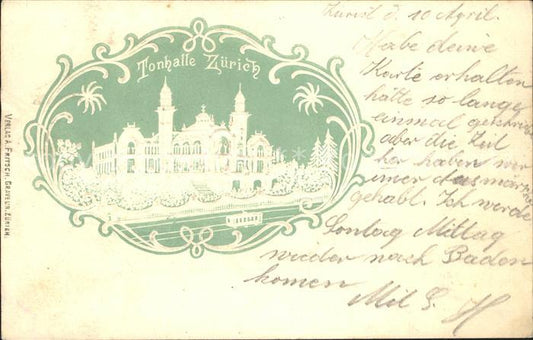 Tonhalle Zürich
VERLAG A. FRITSCH, GRAVEUR, ZÜRICH.
Zürich d. 10 April.
Habe deine
Karte erhalten
hätte so lange
einmal
aber die Zeit
her haben wir
imer
gehabt. Ich werde
Sontag Mittag
wieder nach Baden
komen
Mit G. H